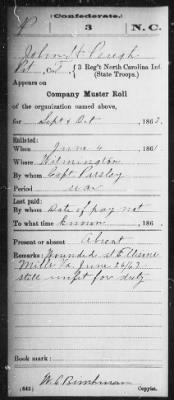 Confederate.
P 3 N.C.
John H Peugh
Pvt, Co. F, 3 Reg't North Carolina Inf.
(State Troops.)
Appears on
Company Muster Roll
of the organization named above,
for Sept & Oct, 1862.
Enlisted:
When June 4, 1861
Where Wilmington
By whom Capt Parsley
Period war
Last paid:
By whom Date of pay not
To what time known, 186 .
Present or absent Absent
Remarks: Wounded at Ellisons
Mills Va June 26/62
still unfit for duty
Book mark:
(642) Copyist.